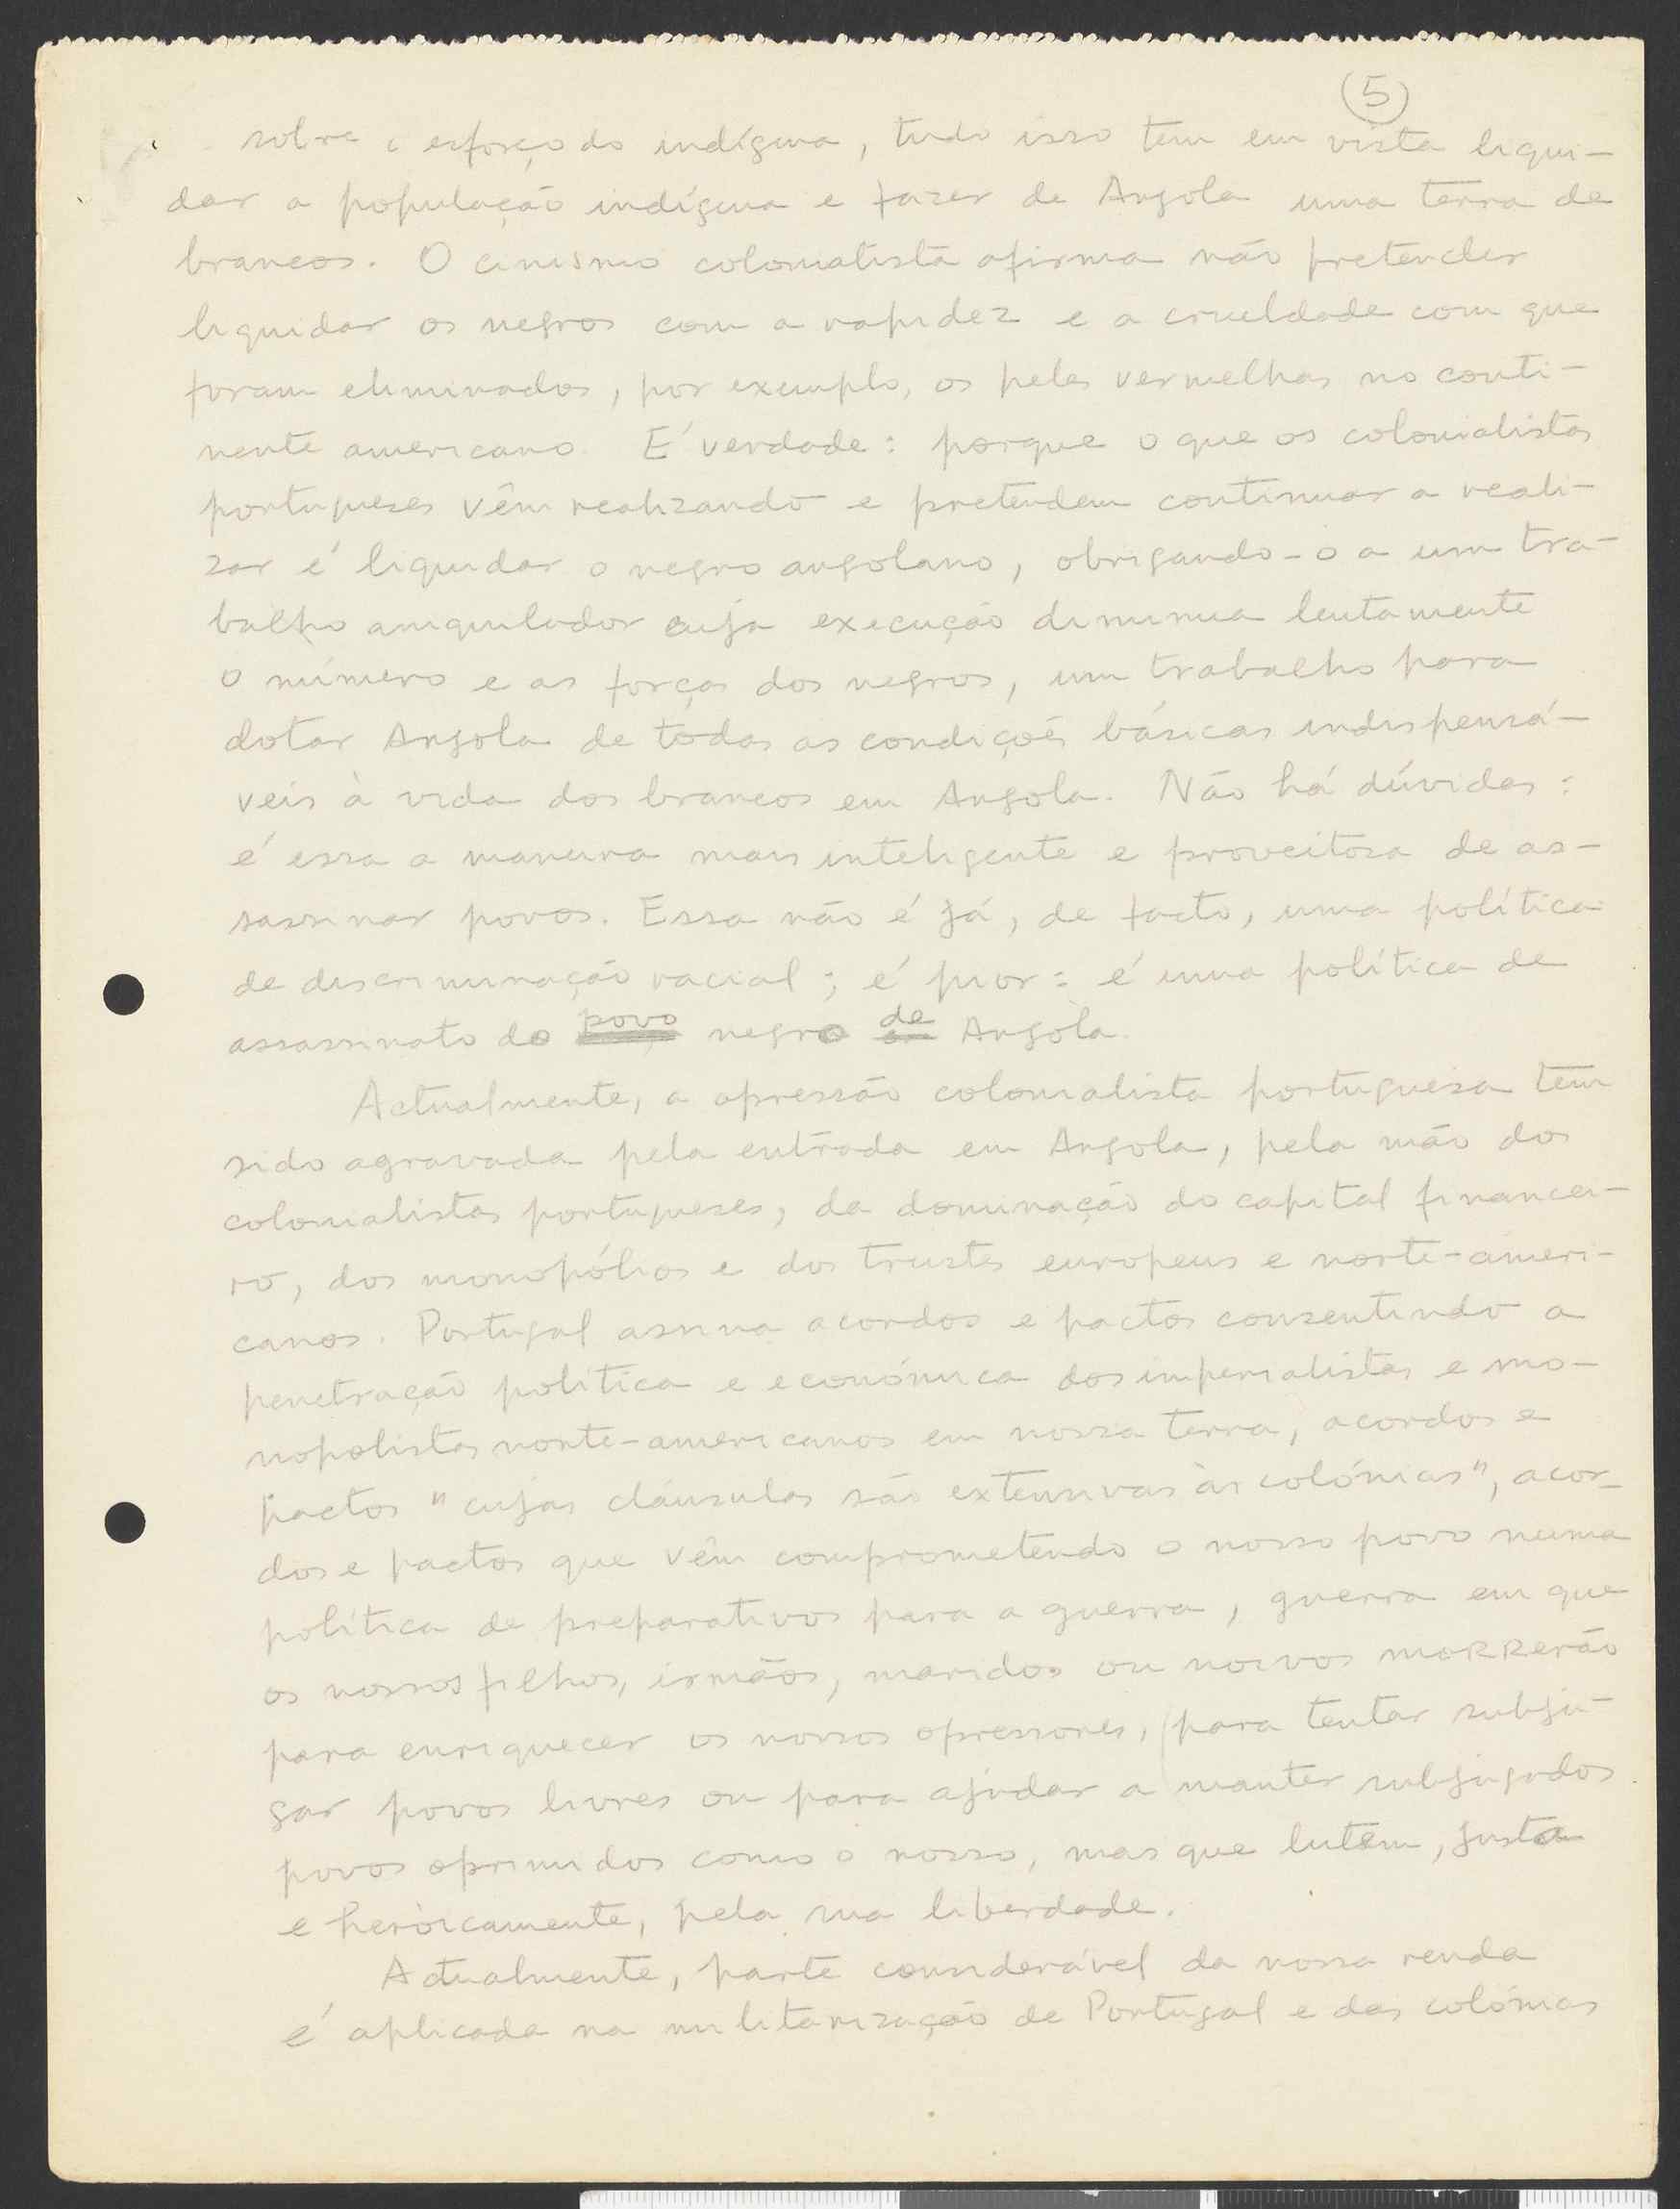 5
sobre o esforço do indígena, tudo isso tem em vista liqui-
dar a população indígena e fazer de Angola uma terra de
brancos. O cinismo colonialista afirma não pretender
liquidar os negros com a rapidez e a crueldade com que
foram eliminados, por exemplo, os peles vermelhas no conti-
nente americano. É verdade: porque o que os colonialistas
portugueses vêm realizando e pretendem continuar a reali-
zar é liquidar o negro angolano, obrigando-o a um tra-
balho aniquilador cuja execução diminua lentamente
o número e as forças dos negros, um trabalho para
dotar Angola de todas as condições básicas indispensá-
veis à vida dos brancos em Angola. Não há dúvidas:
é essa a maneira mais inteligente e proveitosa de as-
sassinar povos. Essa não é já, de facto, uma política
de discriminação racial; é pior: é uma política de
assassinato do povo negro de Angola.
Actualmente, a opressão colonialista portuguesa tem
sido agravada pela entrada em Angola, pela mão dos
colonialistas portugueses, da dominação do capital financei-
ro, dos monopólios e dos trustes europeus e norte-ameri-
canos. Portugal assina acordos e pactos consentindo a
penetração política e económica dos imperialistas e mo-
nopolistas norte-americanos em nossa terra, acordos e
pactos "cujas cláusulas são extensivas às colónias", acor-
dos e pactos que vêm comprometendo o nosso povo numa
política de preparativos para a guerra, guerra em que
os nossos filhos, irmãos, maridos ou noivos moRRerão
para enriquecer os nossos opressores, para tentar subju-
gar povos livres ou para ajudar a manter subjugados
povos oprimidos como o nosso, mas que lutem, justa
e heròicamente, pela sua liberdade.
Actualmente, parte considerável da nossa renda
é aplicada na militarização de Portugal e das colónias